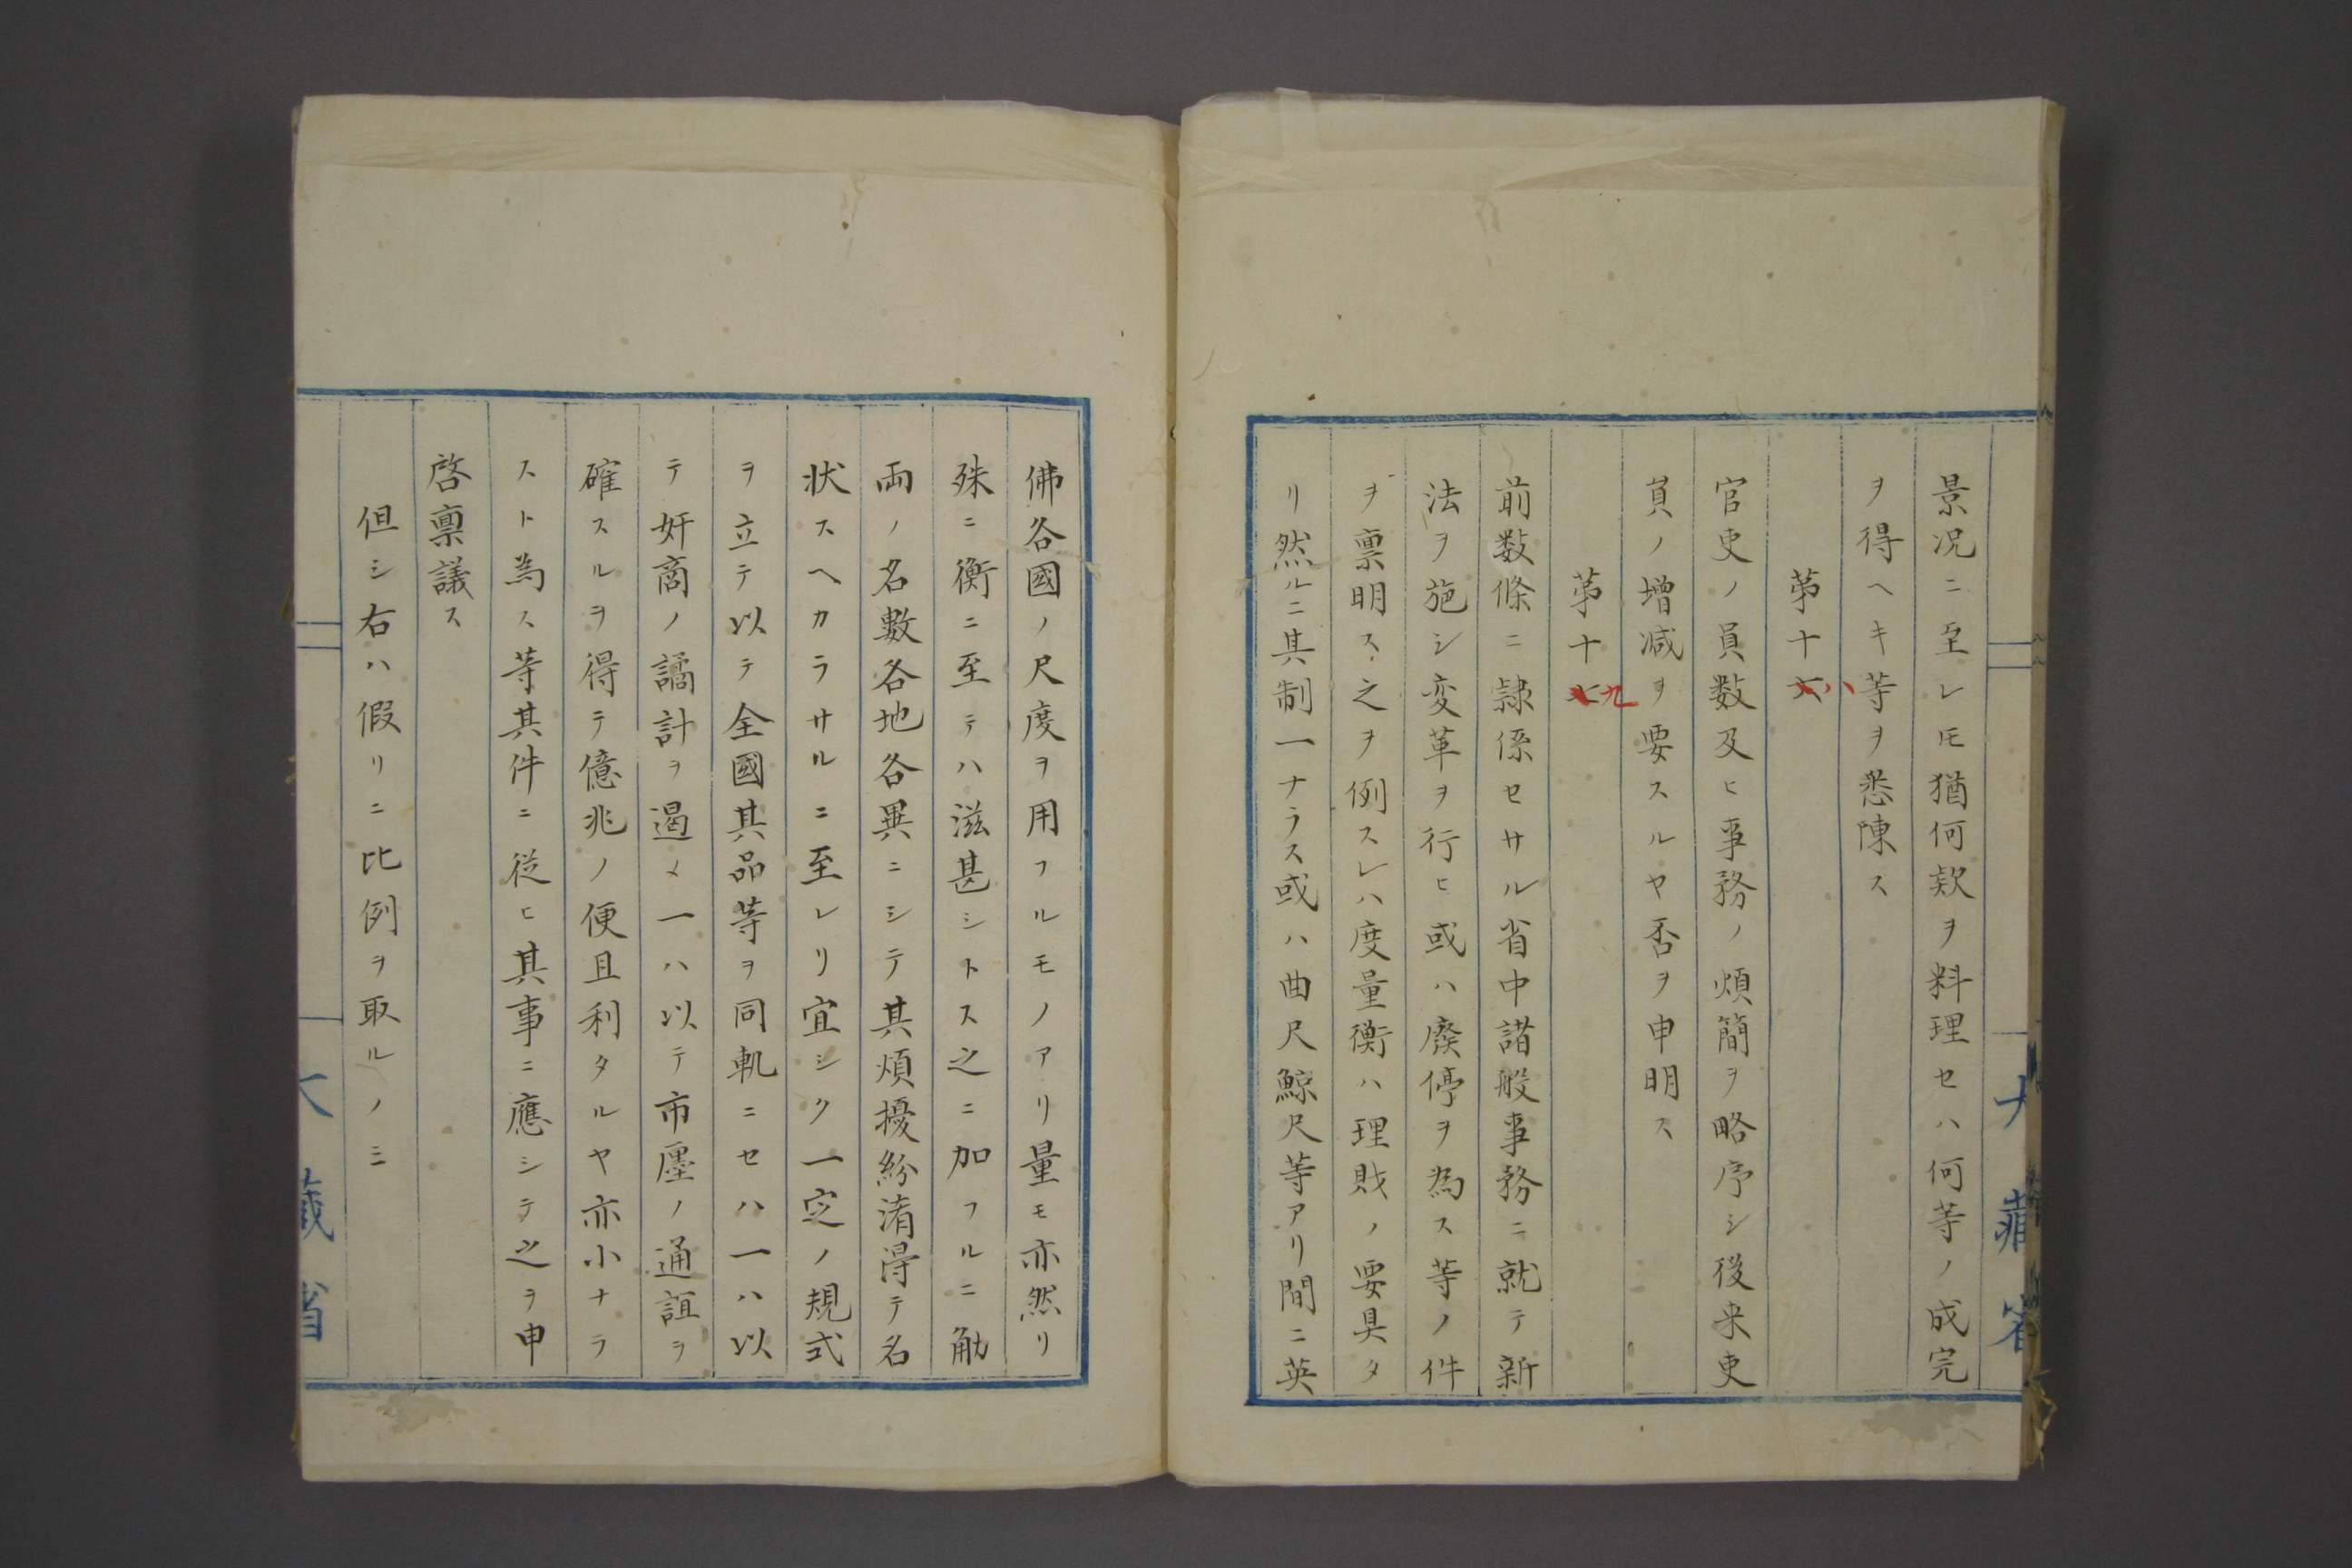 景况ニ至レ𪜈猶何欵ヲ料理セハ何等ノ成完
ヲ得ヘキ等ヲ悉陳ス
苐十六八
官吏ノ員数及ヒ事務ノ煩簡ヲ略序シ後来吏
員ノ増减ヲ要スルヤ否ヲ申明ス
苐十七九
前数條ニ隷係セサル省中諸般事務ニ就テ新
法ヲ施シ変革ヲ行ヒ或ハ廢停ヲ為ス等ノ件
ヲ禀明ス之ヲ例スレハ度量衡ハ理財ノ要具タ
リ然ルニ其制一ナラス或ハ曲尺鯨尺等アリ間ニ英
大藏省
佛各國ノ尺度ヲ用フルモノアリ量モ亦然リ
殊ニ衡ニ至テハ滋甚シトス之ニ加フルニ觔
両ノ名數各地各異ニシテ其煩擾紛淆得テ名
状スヘカラサルニ至レリ宜シク一定ノ規式
ヲ立テ以テ全國其品等ヲ同軌ニセハ一ハ以
テ奸商ノ譎計ヲ遏メ一ハ以テ市廛ノ通誼ヲ
確スルヲ得テ億兆ノ便且利タルヤ亦小ナラ
スト為ス等其件ニ従ヒ其事ニ應シテ之ヲ申
啓禀議ス
但シ右ハ假リニ比例ヲ取ルノミ
大藏省